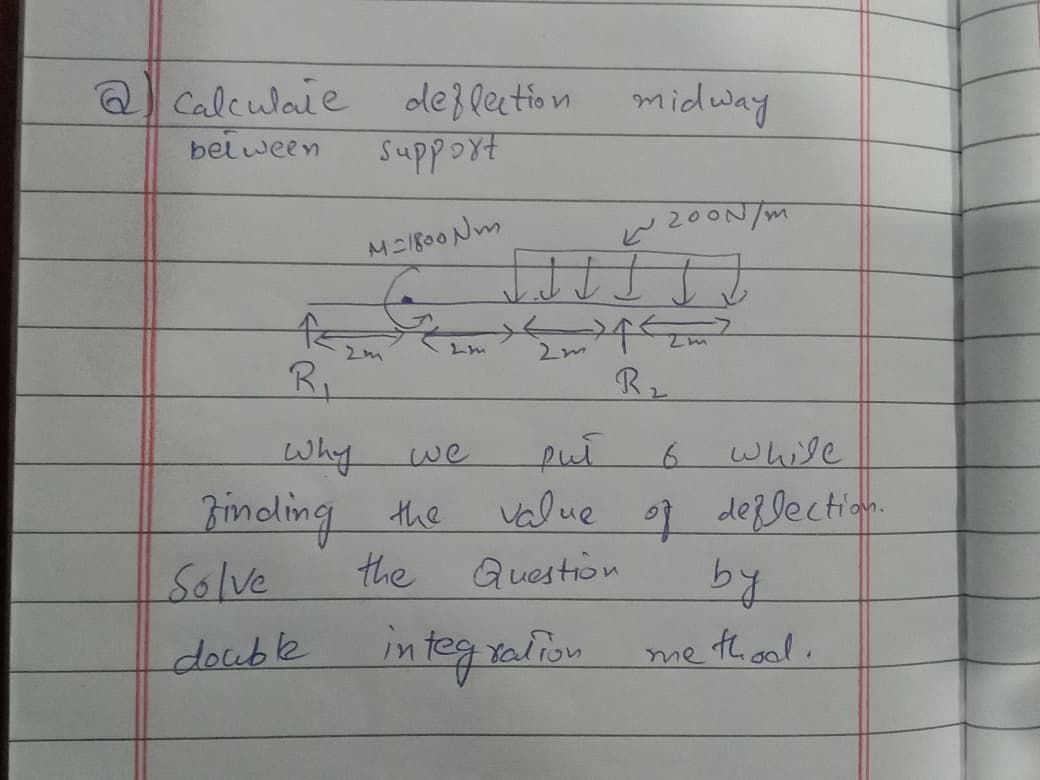 Q) Calculate deflection midway
between support
M=1800 Nm
200N/m
2m 2m 2m 2m
R1 R2
Why we put 6 while
finding the value of deflection.
Solve the Question by
double integration method.